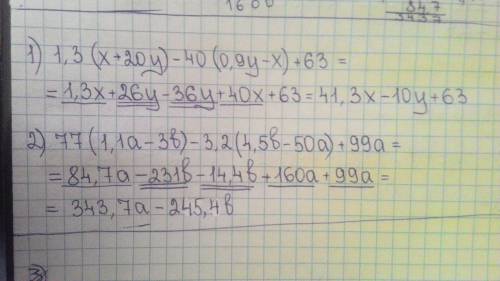 1600
847
3437
1) 1,3(x+20y)-40(0,9y-x)+63=
=1,3x+26y-36y+40x+63=41,3x-10y+63
2) 77(1,1a-3в)-3,2(4,5в-50a)+99a=
=84,7a-231в-14,4в+160a+99a=
=343,7a-245,4в
3)